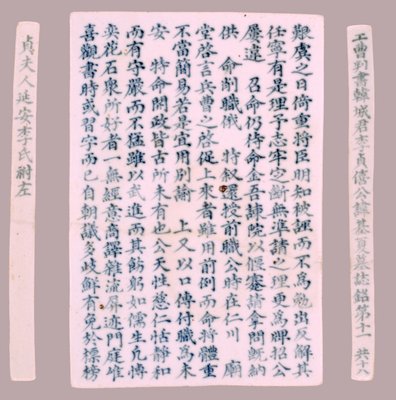 工曹判書韓城君李貞僖公諱基夏墓誌銘第十一 共十六
艱虞之日倚重將臣明知被誣而不爲勉出反解其
任寧有是理予志牢定斷無準請之理更爲牌招公
屢違 召命仍待命金吾諫院以偃蹇請拿問旣納
供 命削職俄 特叙還授前職公時在仁川 廟
堂啓言兵曹之啓促上來者雖用前例而命將體重
不當簡易若是宜用別諭 上又以口傳付職爲未
安 特命開政皆古所未有也公天性慈仁恬靜和
而有守嚴而不猛雖以武進而其飭躬如儒生凡博
奕花石衆所好者一無經意商譯雜流屛迹門庭唯
喜觀書時或習字而已自朝議多歧鮮有免於標榜
貞夫人延安李氏祔左